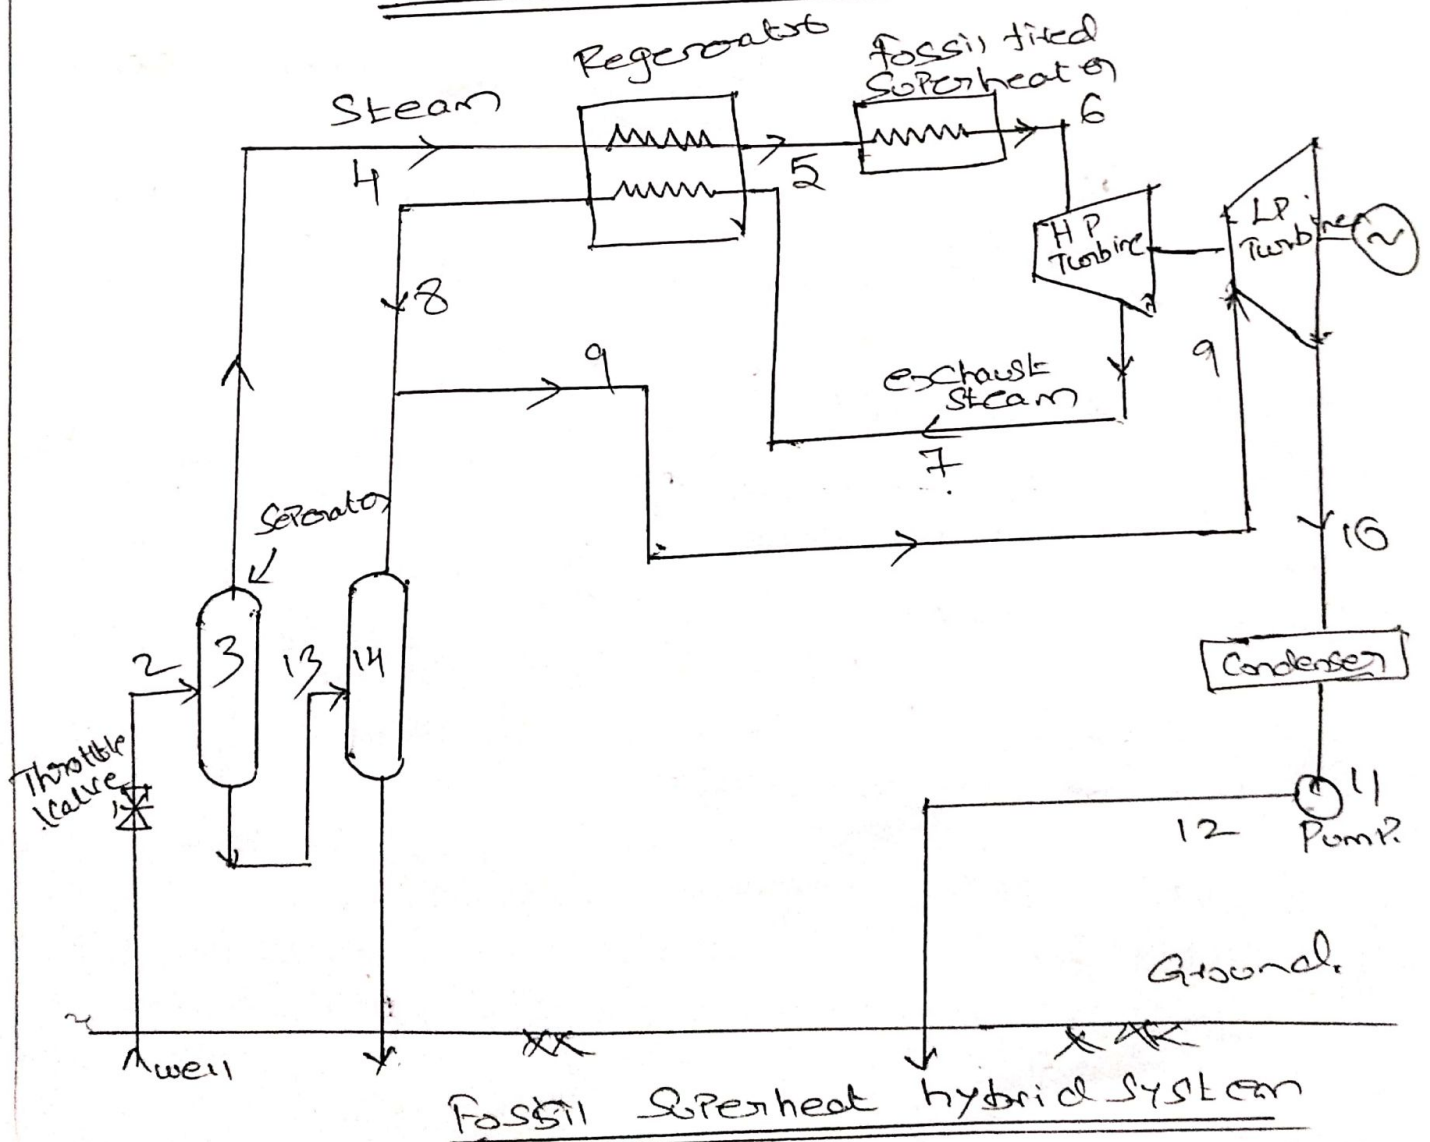 Regenerator
Fossil fired
Superheater
Steam
4
5
6
HP
Turbine
LP
Turbine
~
8
9
9
exhaust
steam
7
Seperator
10
2
3
13
14
Condenser
Throttle
Valve
1
11
12
Pump.
Ground.
well
Fossil Superheat hybrid System